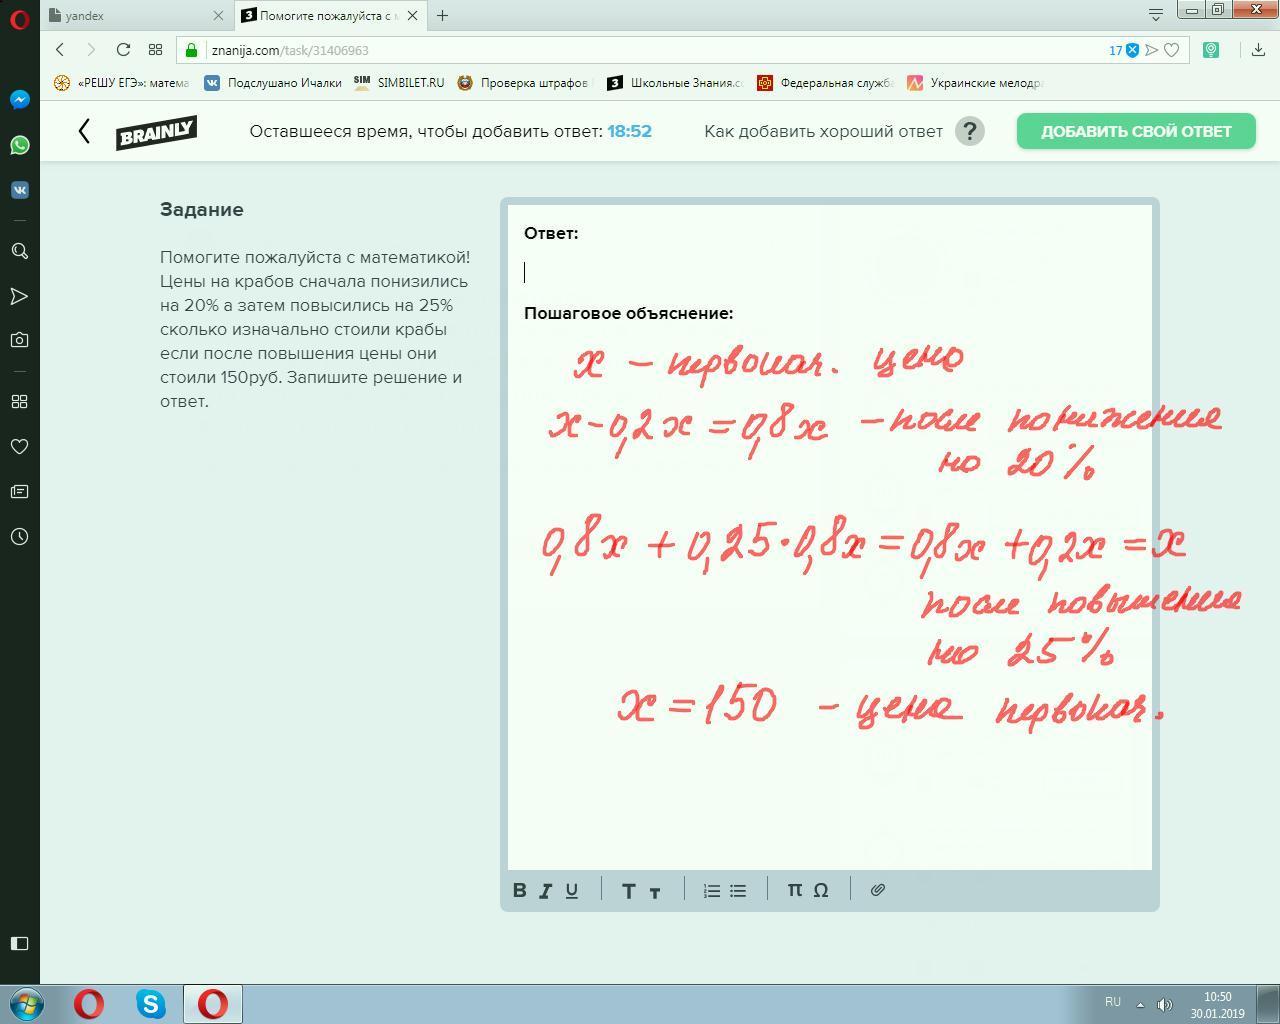 yandex
Помогите пожалуйста с м
znanija.com/task/31406963
17
«РЕШУ ЕГЭ»: матема
Подслушано Ичалки
SIM SIMBILET.RU
Проверка штрафов
Школьные Знания.co
Федеральная служба
Украинские мелодра
BRAINLY
Оставшееся время, чтобы добавить ответ: 18:52
Как добавить хороший ответ ?
ДОБАВИТЬ СВОЙ ОТВЕТ
Задание
Помогите пожалуйста с математикой!
Цены на крабов сначала понизились
на 20% а затем повысились на 25%
сколько изначально стоили крабы
если после повышения цены они
стоили 150руб. Запишите решение и
ответ.
Ответ:
Пошаговое объяснение:
x – первонач. цена
x-0,2x=0,8x – после понижения
на 20%
0,8x+0,25·0,8x=0,8x+0,2x=x
после повышения
на 25%
x=150 – цена первонач.
B I U T т π Ω
RU
10:50
30.01.2019